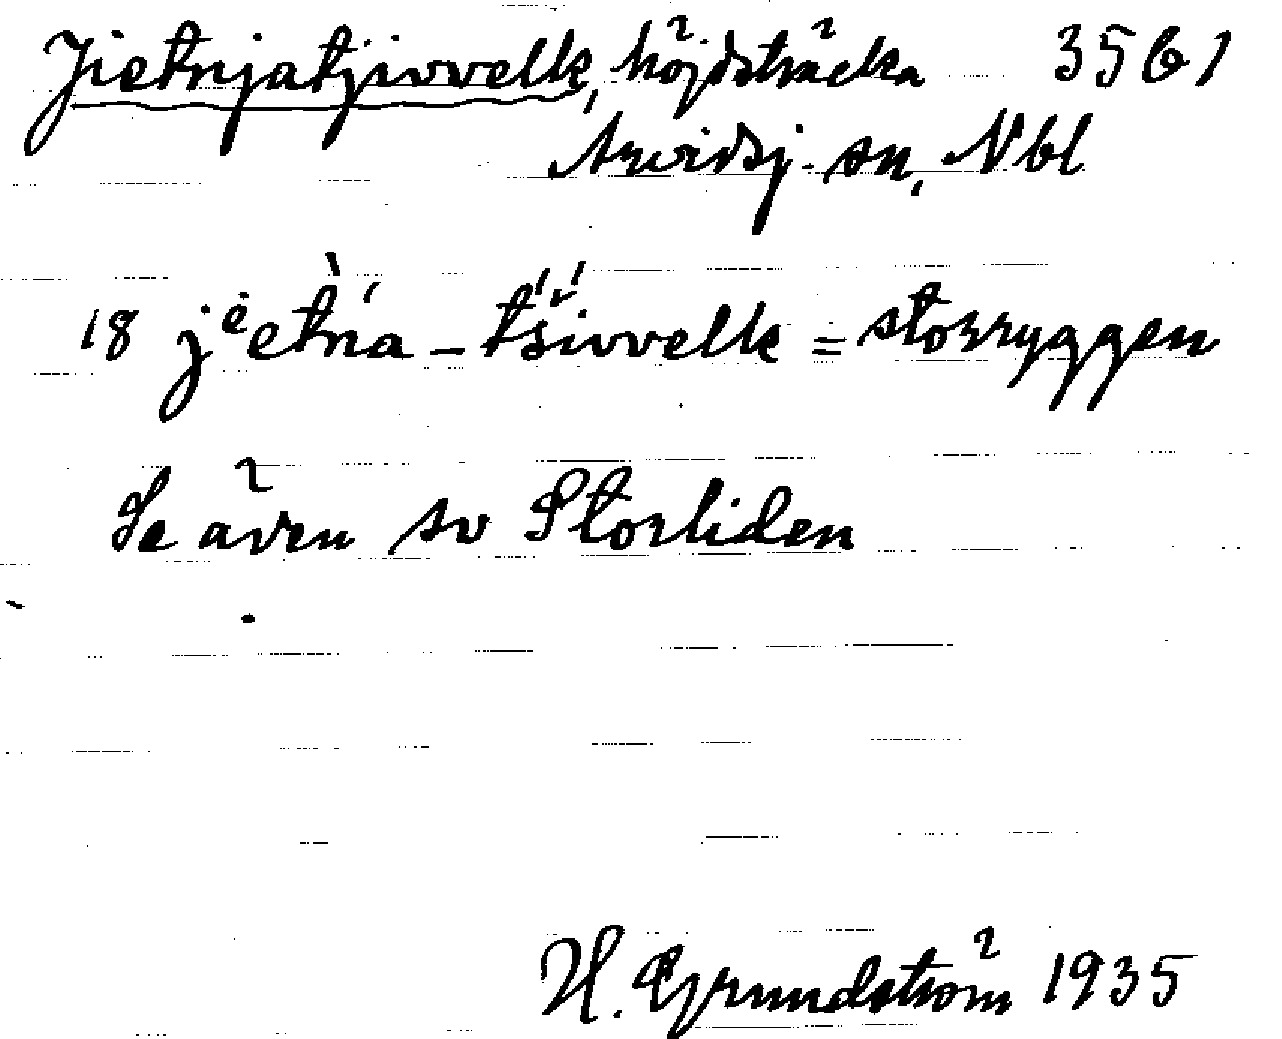 Jietnjatjivvelk, höjdsträcka 3561
Arvidsj. sn, Nbl
18 jᵉètńa - tš́ivvelk = storryggen
Se även sv Storliden
H. Grundström 1935